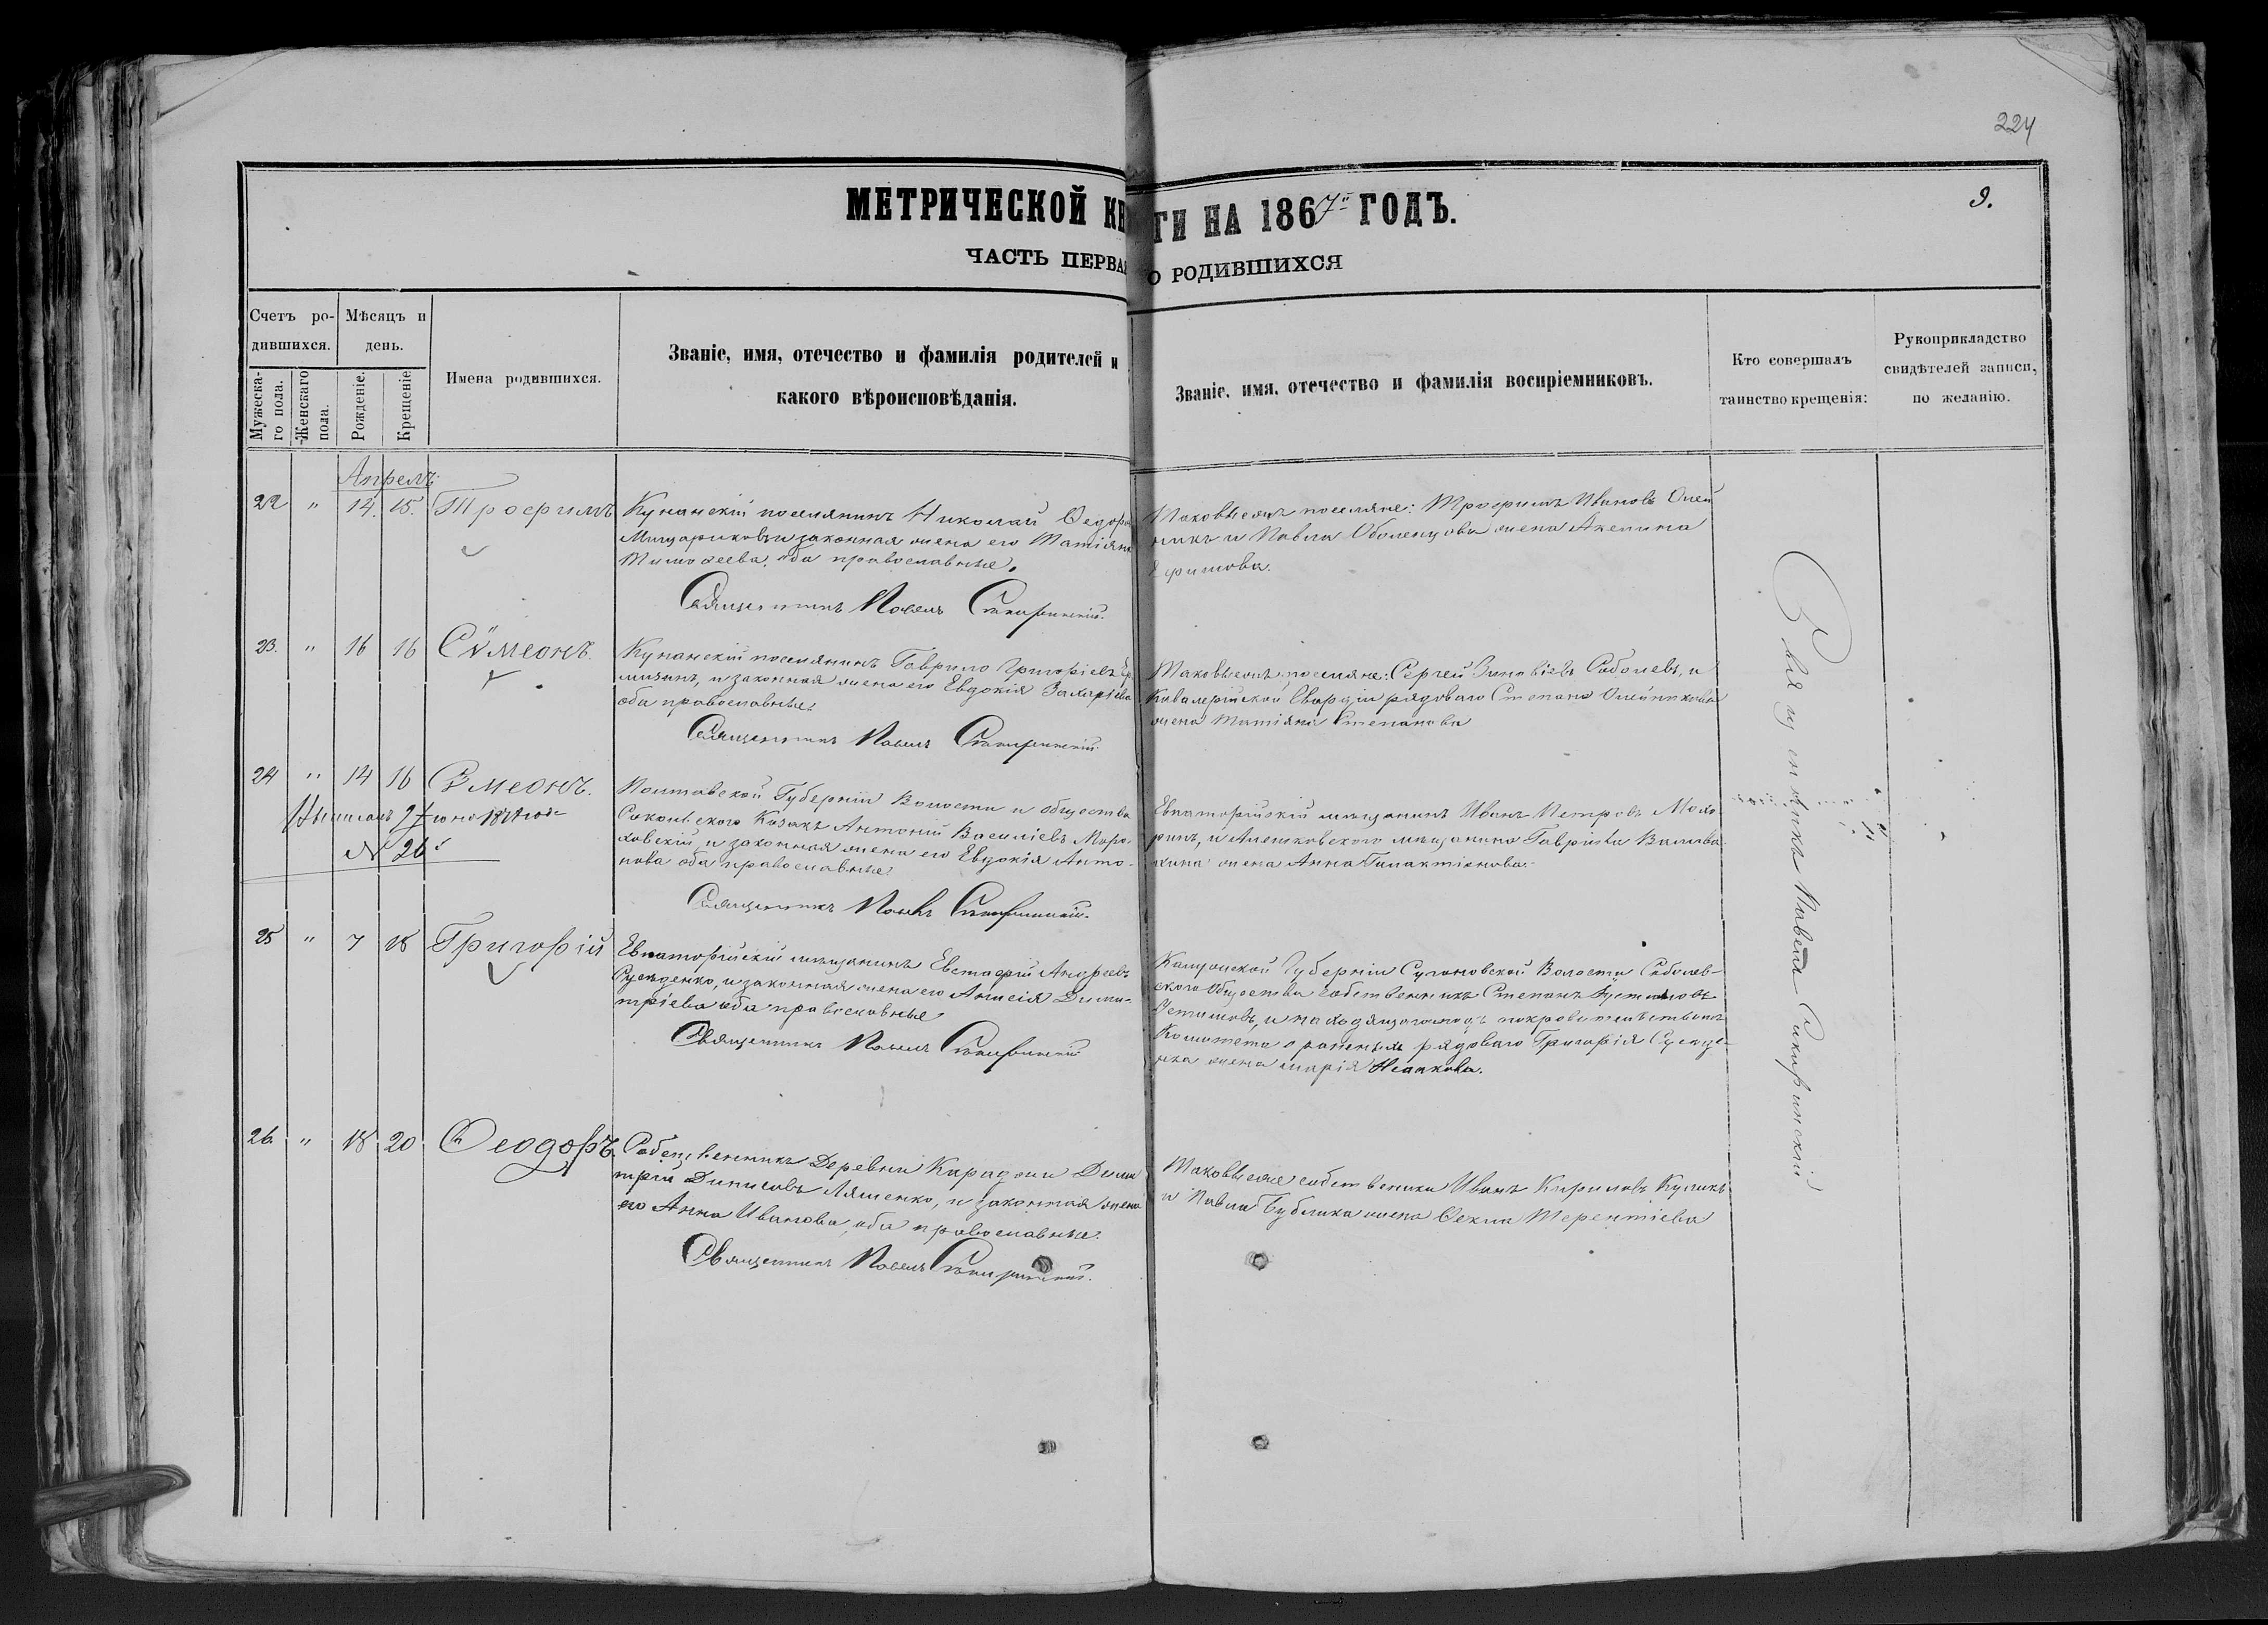 224
9.
МЕТРИЧЕСКОЙ КН ГИ НА 1867 ГОДЪ.
ЧАСТЬ ПЕРВА О РОДИВШИХСЯ
Счетъ ро-
дившихся.
Мужеска-
го пола.
Женскаго
пола.
Мѣсяцъ и
день.
Рожденіе.
Крещеніе
Имена родившихся.
Званіе, имя, отечество и фамилія родителей и
какого вѣроисповѣданія.
Званіе, имя, отечество и фамилія воспріемниковъ.
Кто совершалъ
таинство крещенія:
Рукоприкладство
свидѣтелей записи,
по желанію.
Апрель
22 " 14. 15. Трофимъ
Кунанскій поселянинъ Николай Ѳедоро
и законная жена его Татіяна
Тимоѳеева, оба православные.
Священникъ Павелъ
Таковыежъ поселяне: Трофимъ Ивановъ Олей
никъ и Павла Оболенцова жена Акелина
Ефимова.
23. " 16 16 Сѵмеонъ.
Кунанскій поселянинъ Гаврило Григоріевъ
и законная жена его Евдокія Захаріева
оба православные.
Священникъ Павелъ
Таковыежъ поселяне: Сергей Зиновіевъ Соболевъ, и
Кавалерійской Гвардіи рядоваго Степана Олейникова
жена Татіяна Степанова
24 " 14 16 Сѵмеонъ.
№ 26
Полтавской Губерніи Волости и общества
Сокольского Козакъ Антоній Василіевъ Моро-
ховскій, и законная жена его Евдокія Анто-
нова оба православные.
Священникъ Павелъ
Евпаторійскій мещанинъ Иванъ Петровъ
и Алешковского мещанина Гавріила
жена Анна Галактіонова.
25 " 7 18 Григорій
Евпаторійскій мещанинъ Евстафій Андреевъ
и законная жена его Анисія Дими-
тріева оба православные
Священникъ Павелъ
Калужской Губерніи Волости Соболев-
ского общества собственникъ Степанъ
Устиновъ, и находящагося подъ покровительствомъ
Комитета о раненыхъ рядоваго Григорія
жена Марія
26. " 18 20 Ѳеодоръ.
Собственникъ Деревни Караджи Дими
трій Даниловъ Ляшенко, и законная жена
его Анна Иванова, оба православные.
Священникъ Павелъ
Таковыеже собственики Иванъ Кириловъ Куликъ
и Павла Бублика жена Ѳекла Терентіева
Священникъ Павелъ